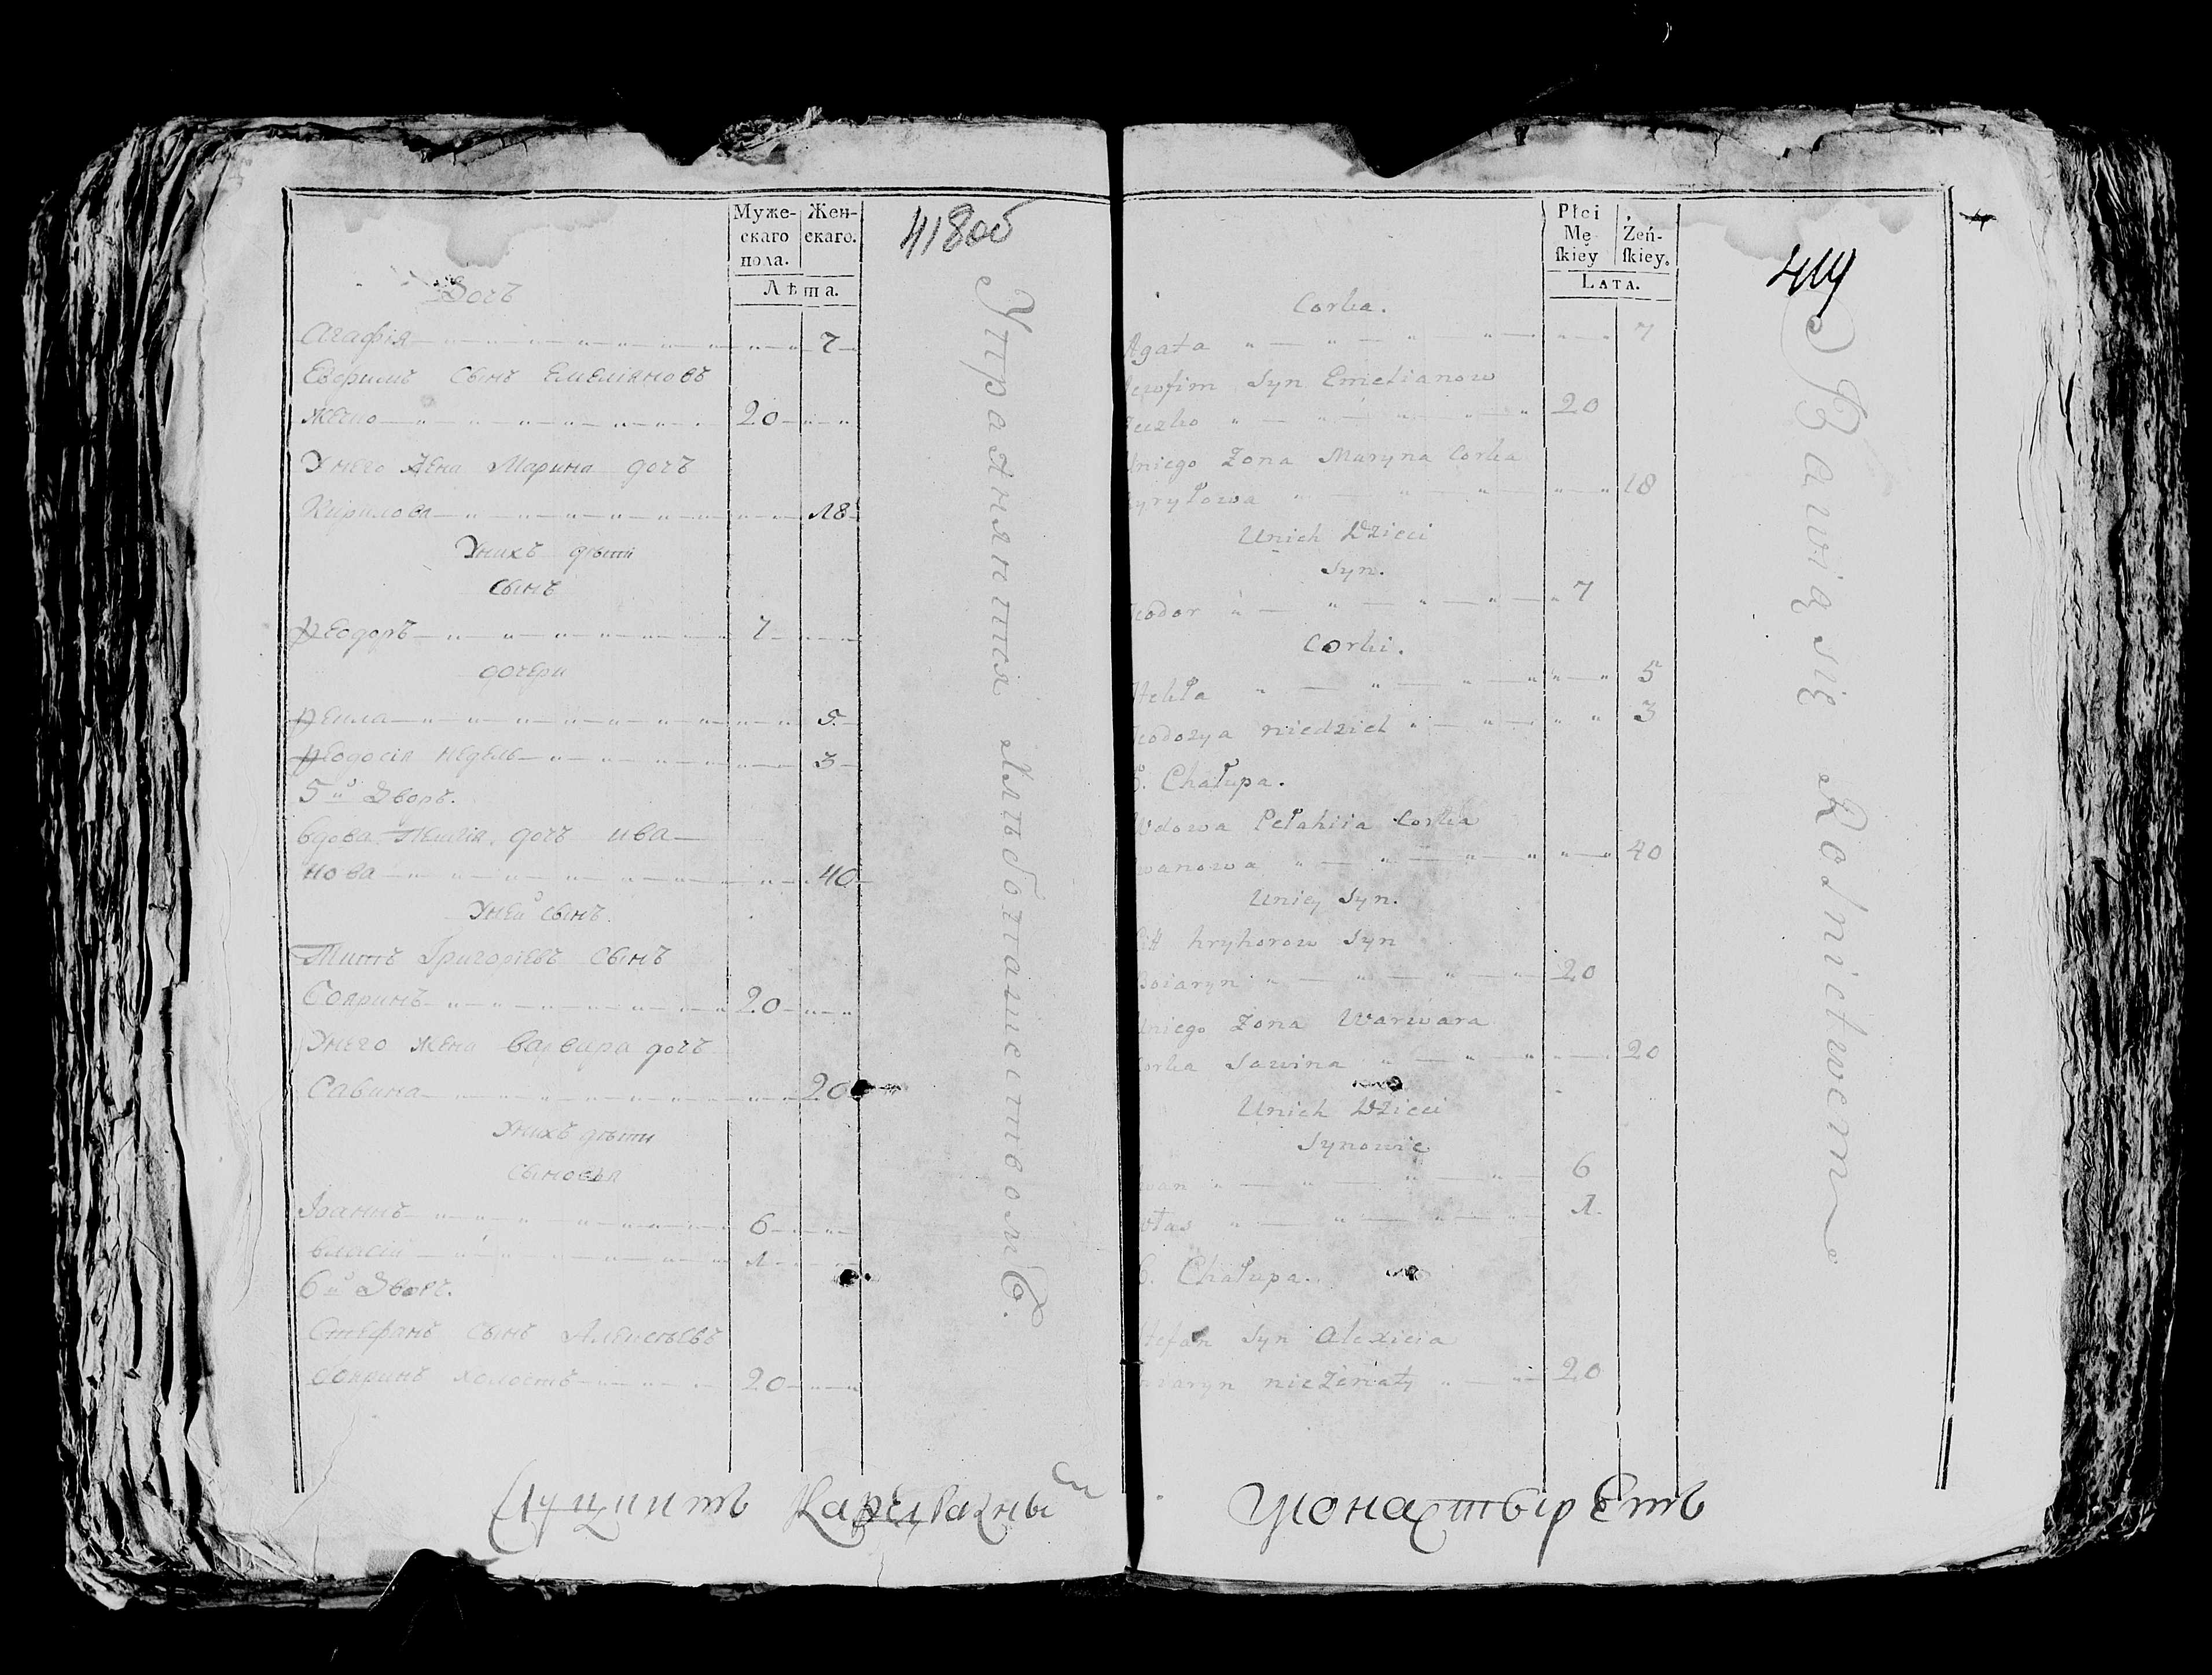 Муже-
скаго
пола.
Жен-
скаго.
Лѣта.
418об
Дочъ
Агафія 7
Евфимъ сынъ Емеліяновъ
20
Унего Жена Марина дочъ
Кирилова 18
Унихъ дѣти
сынъ
Ѳеодоръ 7
дочери
Ѳекла 5
Ѳеодосія недель 3
5й Дворъ.
вдова дочъ ива
нова 40
Уней сынъ.
Титъ Григоріевъ сынъ
Бояринъ 20
Унего жена варвара дочъ
Савина 20
Унихъ дѣти
сыновья
Іоаннъ 6
власій 1
6й Дворъ.
Стефанъ сынъ Алексѣевъ
бояринъ холостъ 20
Упражняются хлѣбопашествомъ.
Płci
Mę
ſkiey
Żeń-
ſkiey.
Lata.
419
Corka.
Agata 7
Jewfim Syn Emelianow
20
Uniego Zona Maryna Corka
Kyryłowa 18
Unich Dzieci
Syn.
Teodor 7
Corki.
Tekła 5
Teodozya niedziel 3
5. Chałupa.
Wdowa Pełahiia Corka
Iwanowa 40
Uniey Syn.
Tit hryhorow Syn
Boiaryn 20
Uniego Zona Warwara
Corka Sawina 20
Unich Dzieci
Synowie
Iwan 6
Własz 1
6. Chałupa.
Stefan Syn Alexieia
Boiaryn nieżenaty 20
Bawią się Rolnictwem
монастырѣтъ